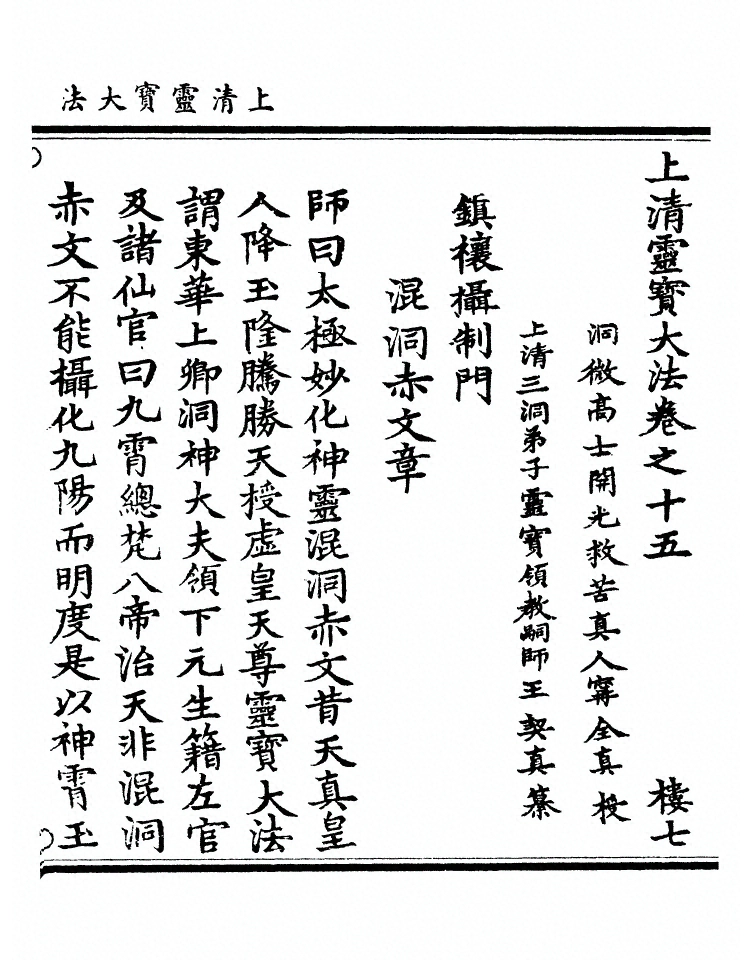 上清靈寶大法
上清靈寶大法卷之十五 樓七
洞微高士開光救苦真人甯全真授
上清三洞弟子靈寶領教嗣師王契真纂
鎮禳攝制門
混洞赤文章
師曰太極妙化神靈混洞赤文昔天真皇
人降玉隆騰勝天授虛皇天尊靈寶大法
謂東華上卿洞神大夫領下元生籍左官
及諸仙官曰九霄總梵八帝治天非混洞
赤文不能攝化九陽而明度是以神霄玉